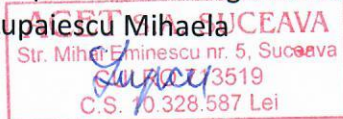 upaiescu Mihaela
ACET SA SUCEAVA
Str. Mihai Eminescu nr. 5, Suceava
713519
C.S. 10.328.587 Lei